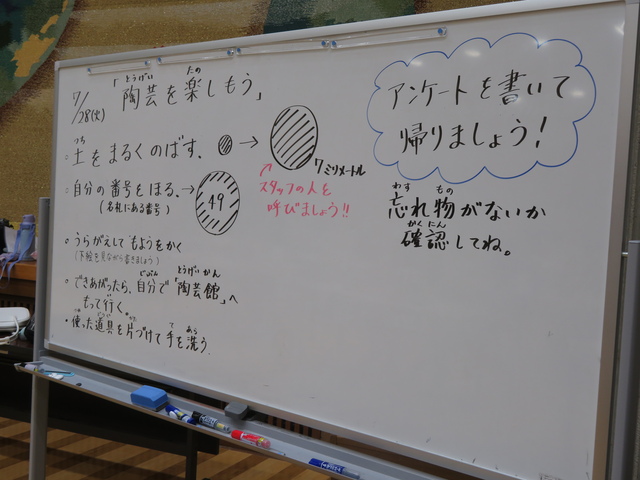 7/28(火)
「陶芸を楽しもう」
とうげい たの
・土をまるくのばす。→
つち
7ミリメートル
スタッフの人を
呼びましょう!!
・自分の番号をほる。→
(名札にある番号)
49
・うらがえして もようをかく
(下絵を見ながら書きましょう)
・できあがったら、自分で「陶芸館」へ
じぶん とうげいかん
もって行く。
・使った道具を片づけて手を洗う
つか どうぐ かた て あら
アンケートを書いて
帰りましょう!
忘れ物がないか
わす もの
確認してね。
かくにん